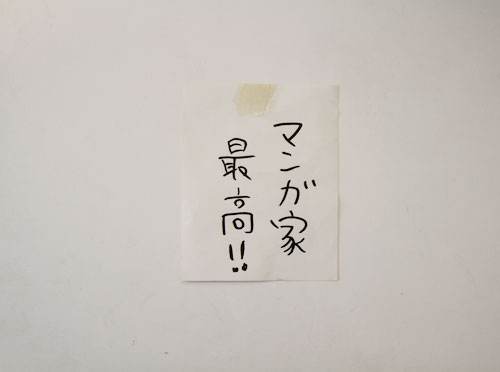 マンガ家
最高!!